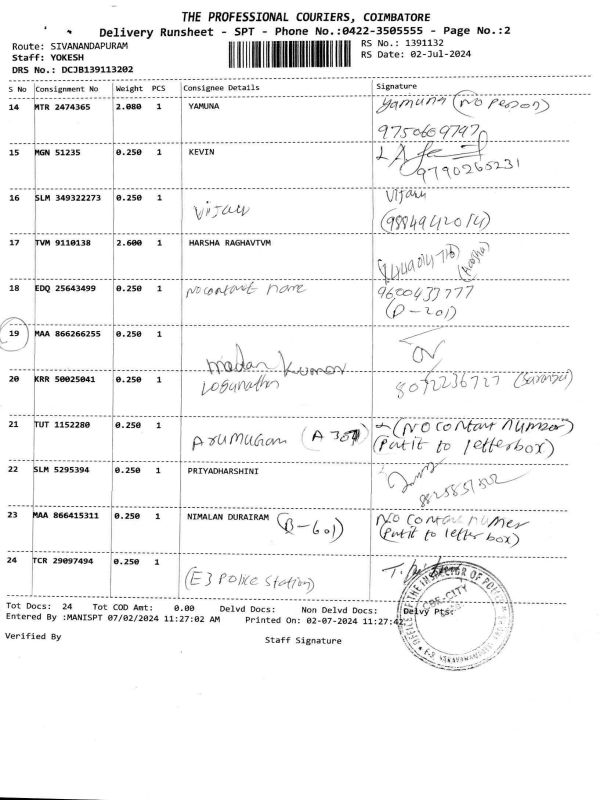 THE PROFESSIONAL COURIERS, COIMBATORE
Delivery Runsheet - SPT - Phone No.:0422-3505555 - Page No.:2
Route: SIVANANDAPURAM
RS No.: 1391132
Staff: YOKESH
RS Date: 02-Jul-2024
DRS No.: DCJB139113202
S No Consignment No Weight PCS Consignee Details Signature
14 MTR 2474365 2.080 1 YAMUNA Yamuna (No Person)
9750609797
15 MGN 51235 0.250 1 KEVIN
9790265231
16 SLM 349322273 0.250 1 Vijay Vijay
(9884942014)
17 TVM 9110138 2.600 1 HARSHA RAGHAVTVM
18 EDQ 25643499 0.250 1 No contact name 9600433777
(D-201)
19 MAA 866266255 0.250 1
Madan Kumar
20 KRR 50025041 0.250 1 Loganathan 8072236727
21 TUT 1152280 0.250 1 Arumugam (No contact number)
(Put it to letterbox)
22 SLM 5295394 0.250 1 PRIYADHARSHINI
23 MAA 866415311 0.250 1 NIMALAN DURAIRAM (B-601) No contact number
(Put it to letter box)
24 TCR 29097494 0.250 1 (E3 Police Station)
Tot Docs: 24 Tot COD Amt: 0.00 Delvd Docs: Non Delvd Docs: Delvy Pts:
Entered By :MANISPT 07/02/2024 11:27:02 AM Printed On: 02-07-2024 11:27:42
Verified By
Staff Signature
OFFICE OF THE INSPECTOR OF POLICE
CBE-CITY